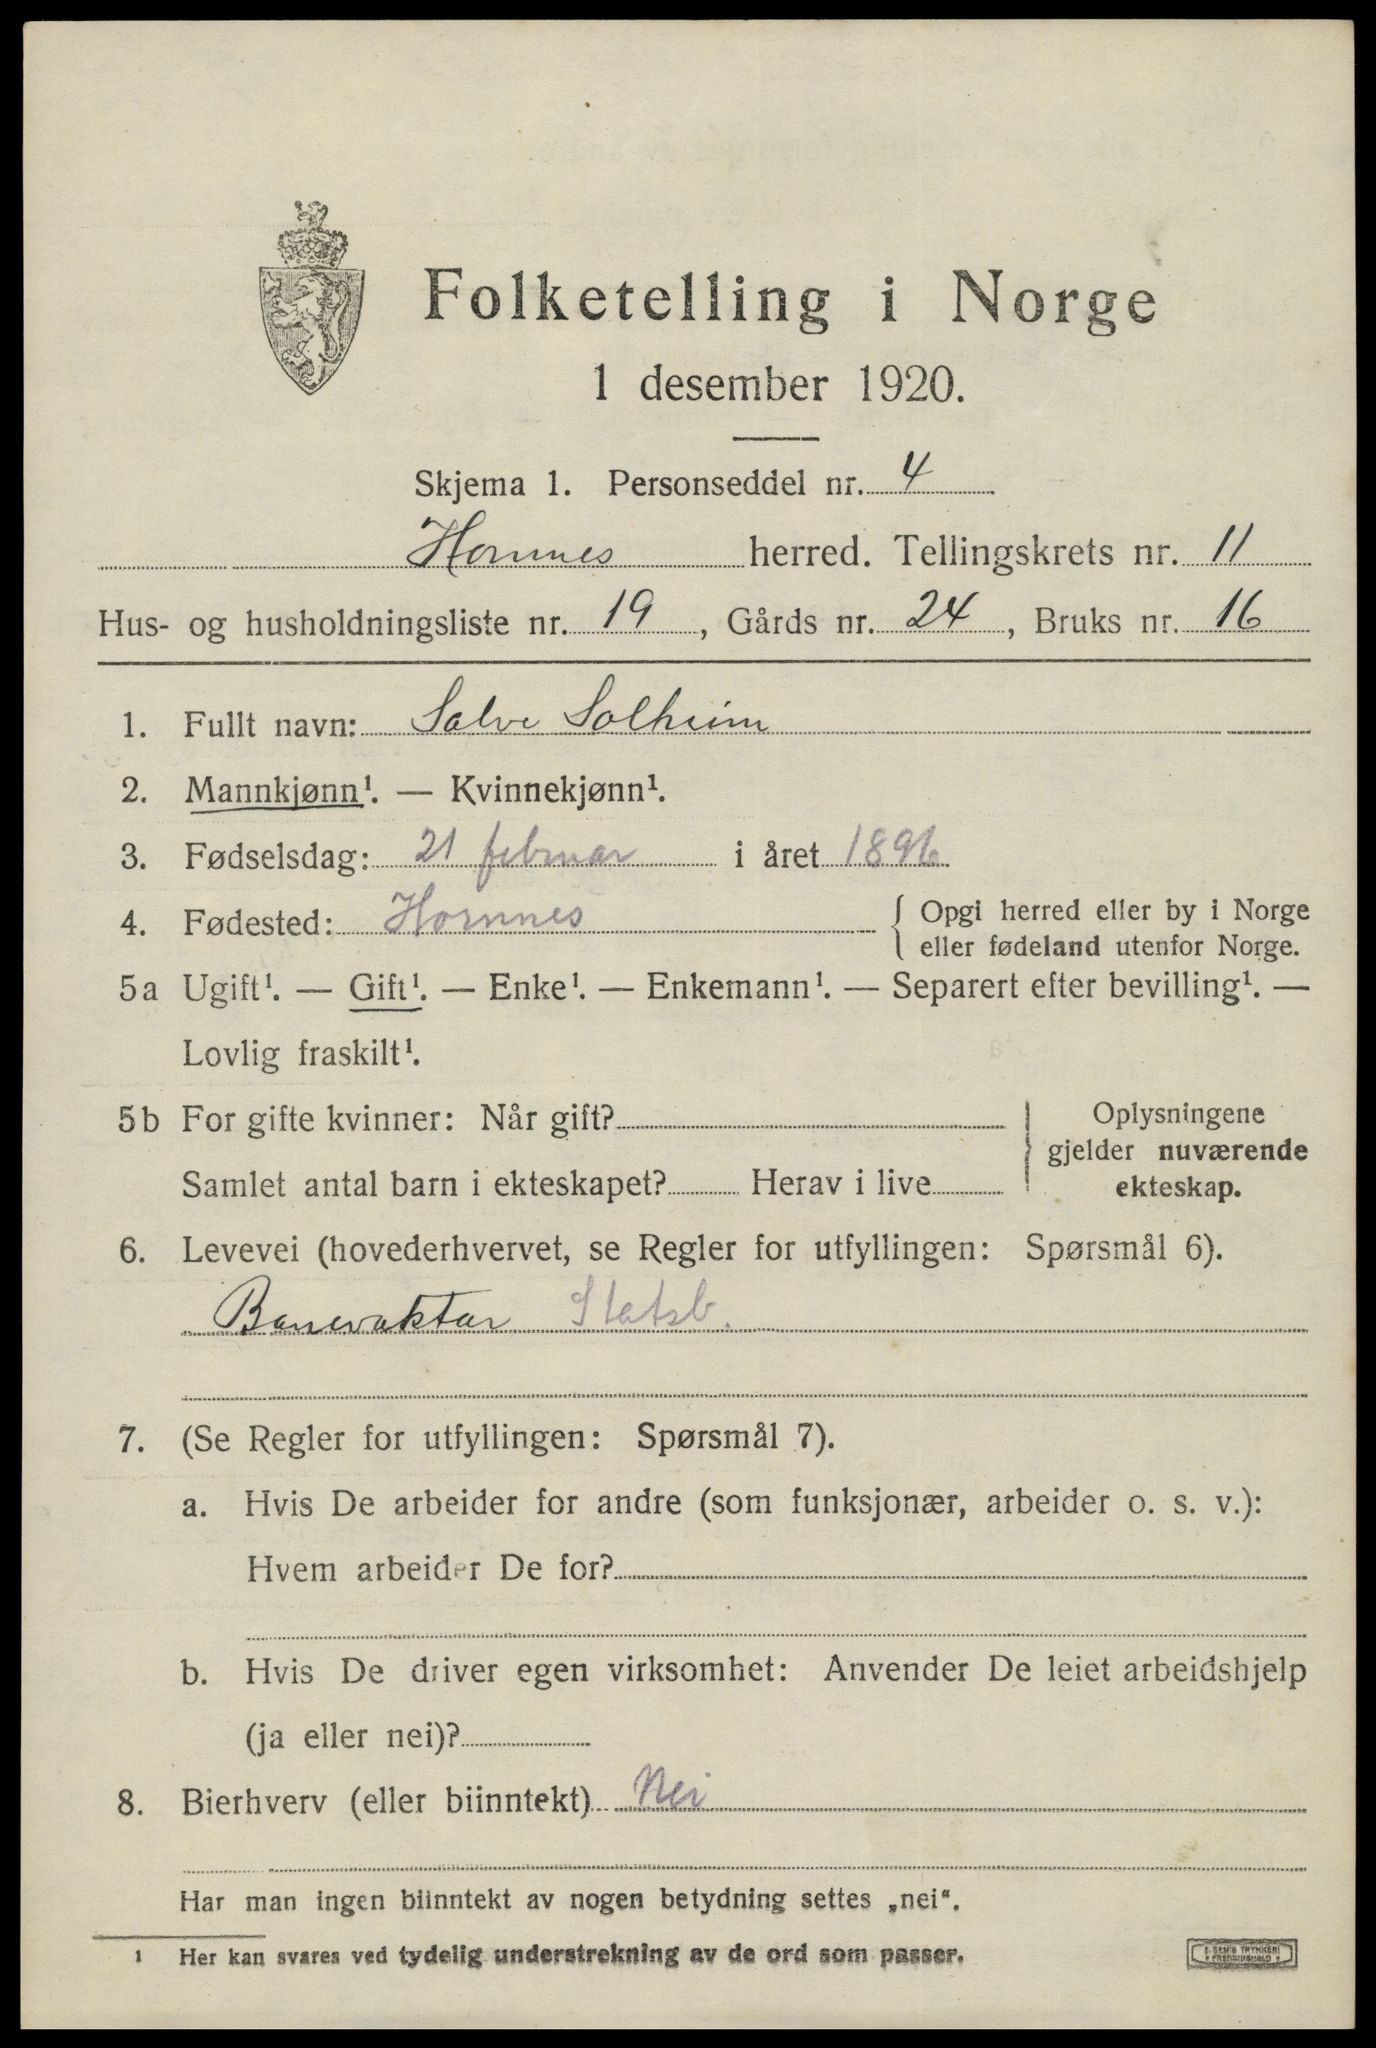 Folketelling i Norge
1 desember 1920.
Skjema 1. Personseddel nr. 4
Hornnes herred. Tellingskrets nr. 11
Hus- og husholdningsliste nr. 19, Gårds nr. 24, Bruks nr. 16
1. Fullt navn: Salve Solheim
2. Mannkjønn¹. — Kvinnekjønn¹.
3. Fødselsdag: 21 februar i året 1896
4. Fødested: Hornnes { Opgi herred eller by i Norge
eller fødeland utenfor Norge.
5a Ugift¹. — Gift¹. — Enke¹. — Enkemann¹. — Separert efter bevilling¹. —
Lovlig fraskilt¹.
5b For gifte kvinner: Når gift? } Oplysningene
gjelder nuværende
Samlet antal barn i ekteskapet? Herav i live ekteskap.
6. Levevei (hovederhvervet, se Regler for utfyllingen: Spørsmål 6).
Banevaktar Statsb.
7. (Se Regler for utfyllingen: Spørsmål 7).
a. Hvis De arbeider for andre (som funksjonær, arbeider o. s. v.):
Hvem arbeider De for?
b. Hvis De driver egen virksomhet: Anvender De leiet arbeidshjelp
(ja eller nei)?
8. Bierhverv (eller biinntekt) Nei
Har man ingen biinntekt av nogen betydning settes „nei“.
¹ Her kan svares ved tydelig understrekning av de ord som passer.